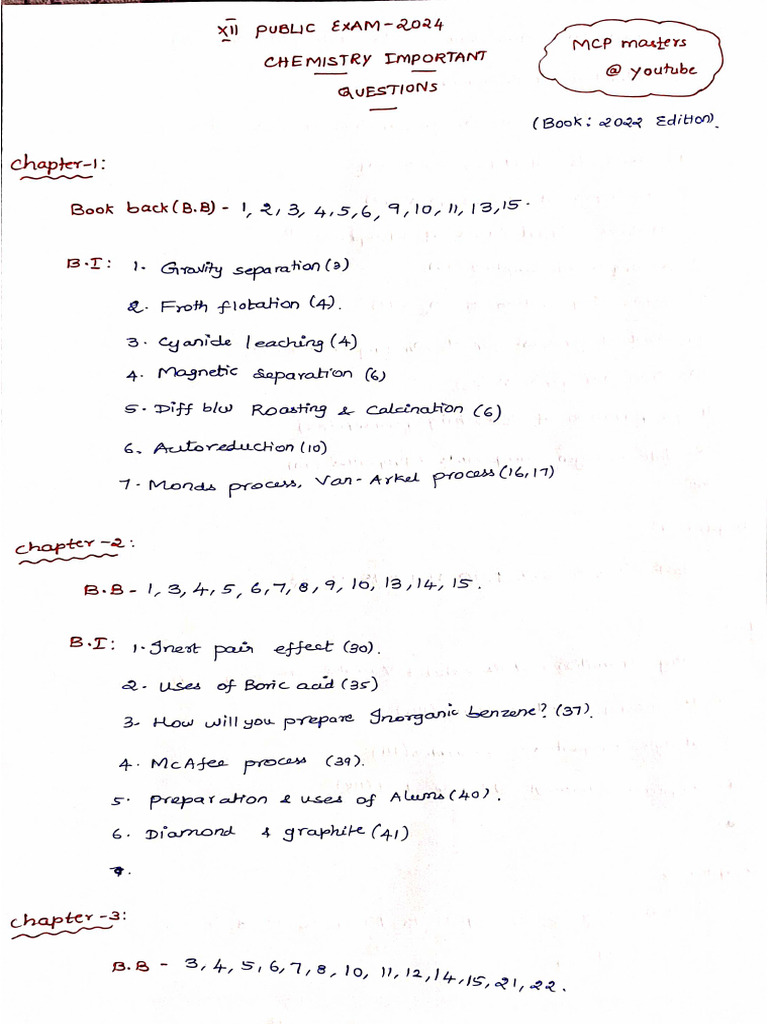 XII PUBLIC EXAM-2024
CHEMISTRY IMPORTANT
QUESTIONS
MCP masters
@ youtube
(Book: 2022 Edition).
Chapter-1:
Book back (B.B) - 1, 2, 3, 4, 5, 6, 9, 10, 11, 13, 15.
B.I: 1. Gravity separation (3)
2. Froth flotation (4).
3. Cyanide leaching (4)
4. Magnetic separation (6)
5. Diff b/w Roasting & Calcination (6)
6. Autoreduction (10)
7. Monds process, Van-Arkel process (16,17)
Chapter-2:
B.B - 1, 3, 4, 5, 6, 7, 8, 9, 10, 13, 14, 15.
B.I: 1. Inert pair effect (30).
2. Uses of Boric acid (35)
3. How will you prepare Inorganic benzene? (37).
4. McAfee process (39).
5. preparation & uses of Alums (40).
6. Diamond & graphite (41)
7.
Chapter-3:
B.B - 3, 4, 5, 6, 7, 8, 10, 11, 12, 14, 15, 21, 22.